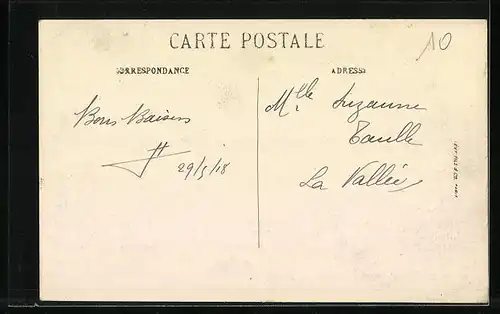 CARTE POSTALE
10
CORRESPONDANCE
ADRESSE
Bons Baisers
29/5/18
Mlle Suzanne
La Vallée